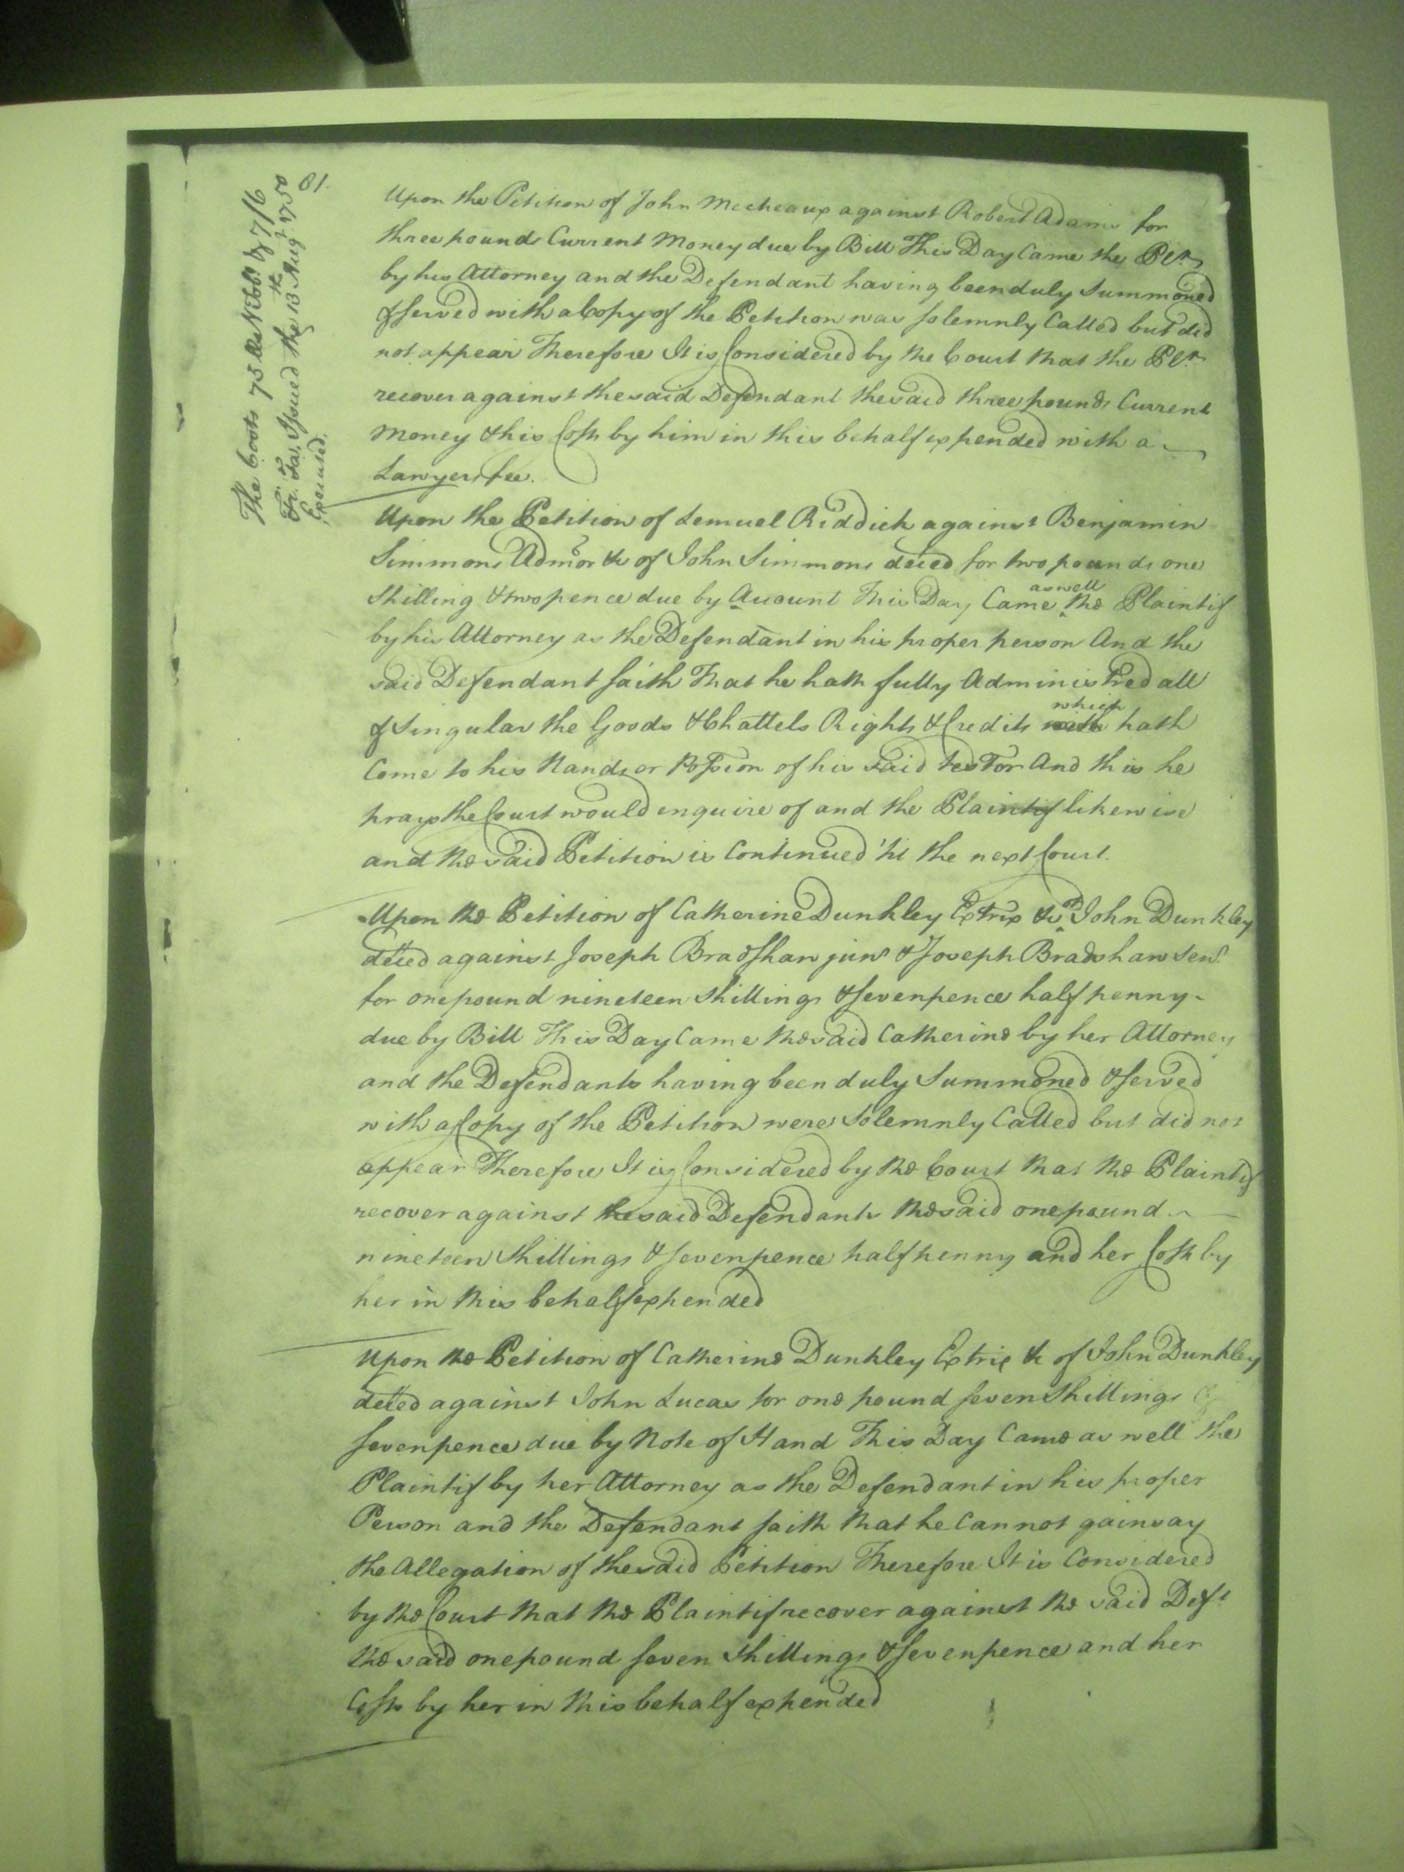 81.
The Costs 75 lbs Nt Tobo & 7/6
Fi. Fa. Issued the 13th Augt 1750
Executed.
Upon the Petition of John Mecheaux against Robert Adams for
three pounds Current Money due by Bill This Day Came the Plt
by his Attorney and the Defendant having been duly Summoned
& served with a Copy of the Petition was solemnly Called but did
not appear Therefore It is Considered by the Court that the Plt
recover against the said Defendant the said three pounds Current
Money & his Costs by him in this behalf expended with a
Lawyers fee.
Upon the Petition of Lemuel Riddick against Benjamin
Simmons Admor &c of John Simmons deced for two pounds one
shilling & twopence due by Account This Day Came as well the Plaintif
by his Attorney as the Defendant in his proper person And the
said Defendant saith That he hath fully Administred all
& Singular the Goods & Chattels Rights & Credits which hath
Come to his Hands or Possion of his said testor And this he
prays the Court would inquire of and the Plaintif likewise
and the said Petition is Continued 'til the next Court.
Upon the Petition of Catherine Dunkley Extrix &c of John Dunkley
deced against Joseph Bradshaw junr & Joseph Bradshaw Senr
for one pound nineteen shillings & sevenpence half penny
due by Bill This Day Came the said Catherine by her Attorney
and the Defendants having been duly Summoned & served
with a Copy of the Petition were Solemnly Called but did not
appear Therefore It is Considered by the Court that the Plaintif
recover against the said Defendants the said one pound
nineteen shillings & sevenpence half penny and her Costs by
her in this behalf expended
Upon the Petition of Catherine Dunkley Extrix &c of John Dunkley
deced against John Lucas for one pound seven shillings &
sevenpence due by Note of Hand This Day Came as well the
Plaintif by her Attorney as the Defendant in his proper
Person and the Defendant saith that he Cannot gainsay
the Allegation of the said Petition Therefore It is Considered
by the Court that the Plaintif recover against the said Deft
the said one pound seven shillings & sevenpence and her
Costs by her in this behalf expended